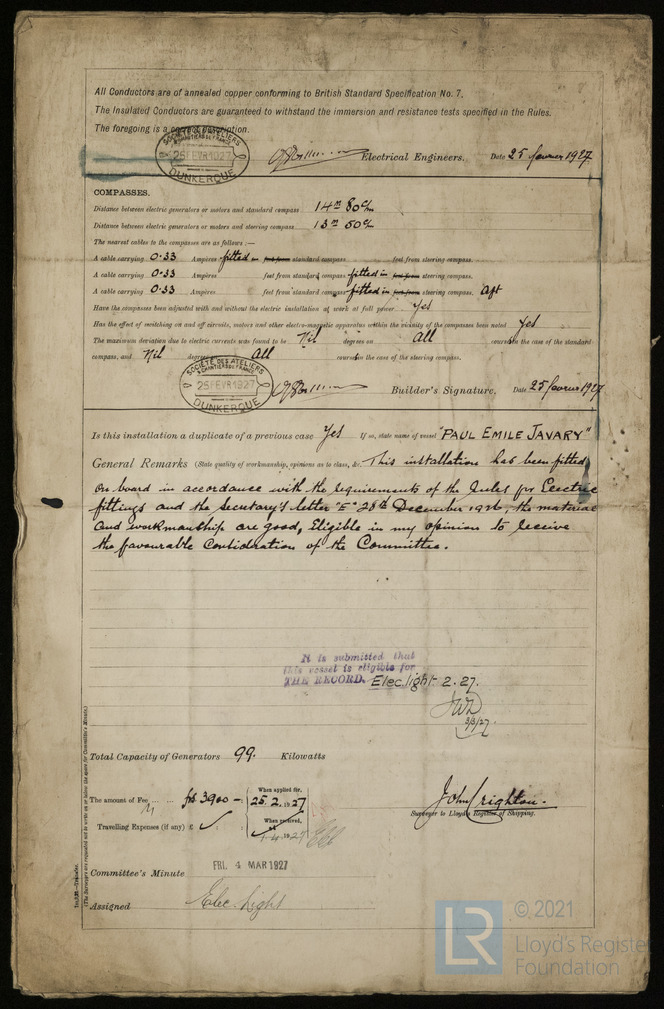 All Conductors are of annealed copper conforming to British Standard Specification No. 7.
The Insulated Conductors are guaranteed to withstand the immersion and resistance tests specified in the Rules.
The foregoing is a correct description.
SOCIÉTÉ DES ATELIERS
& CHANTIERS DE FRANCE
25 FEVR 1927
DUNKERQUE
Electrical Engineers. Date 25 fevrier 1927
COMPASSES.
Distance between electric generators or motors and standard compass 14m 80c/m
Distance between electric generators or motors and steering compass 13m 50c/m
The nearest cables to the compasses are as follows:—
A cable carrying 0.33 Ampères fitted in standard compass feet from steering compass.
A cable carrying 0.33 Ampères feet from standard compass fitted in steering compass.
A cable carrying 0.33 Ampères feet from standard compass fitted in steering compass. Aft
Have the compasses been adjusted with and without the electric installation at work at full power Yes
Has the effect of switching on and off circuits, motors and other electro-magnetic apparatus within the vicinity of the compasses been noted Yes
The maximum deviation due to electric currents was found to be Nil degrees on All course in the case of the standard
compass, and Nil degrees on All course in the case of the steering compass.
SOCIÉTÉ DES ATELIERS
& CHANTIERS DE FRANCE
25 FEVR 1927
DUNKERQUE
Builder's Signature. Date 25 fevrier 1927
Is this installation a duplicate of a previous case Yes If so, state name of vessel "PAUL EMILE JAVARY"
General Remarks (State quality of workmanship, opinions as to class, &c. This installation has been fitted
on board in accordance with the requirements of the Rules for Electric
fittings and the Secretary's letter "E" 28th December 1926, the material
and workmanship are good, Eligible in my opinion to receive
the favourable Consideration of the Committee.
It is submitted that
this vessel is eligible for
THE RECORD. Elec. light 2.27.
3/3/27.
Total Capacity of Generators 99. Kilowatts
The amount of Fee ... ... frs 3900 — : When applied for, 25.2.1927
Travelling Expenses (if any) £ : : When received, 1.4.1927
John Crighton.
Surveyor to Lloyd's Register of Shipping.
Committee's Minute FRI. 4 MAR 1927
Assigned Elec. Light
(The Surveyors are requested not to write on or below the space for Committee's Minute.)
© 2021
LR
Lloyd's Register
Foundation